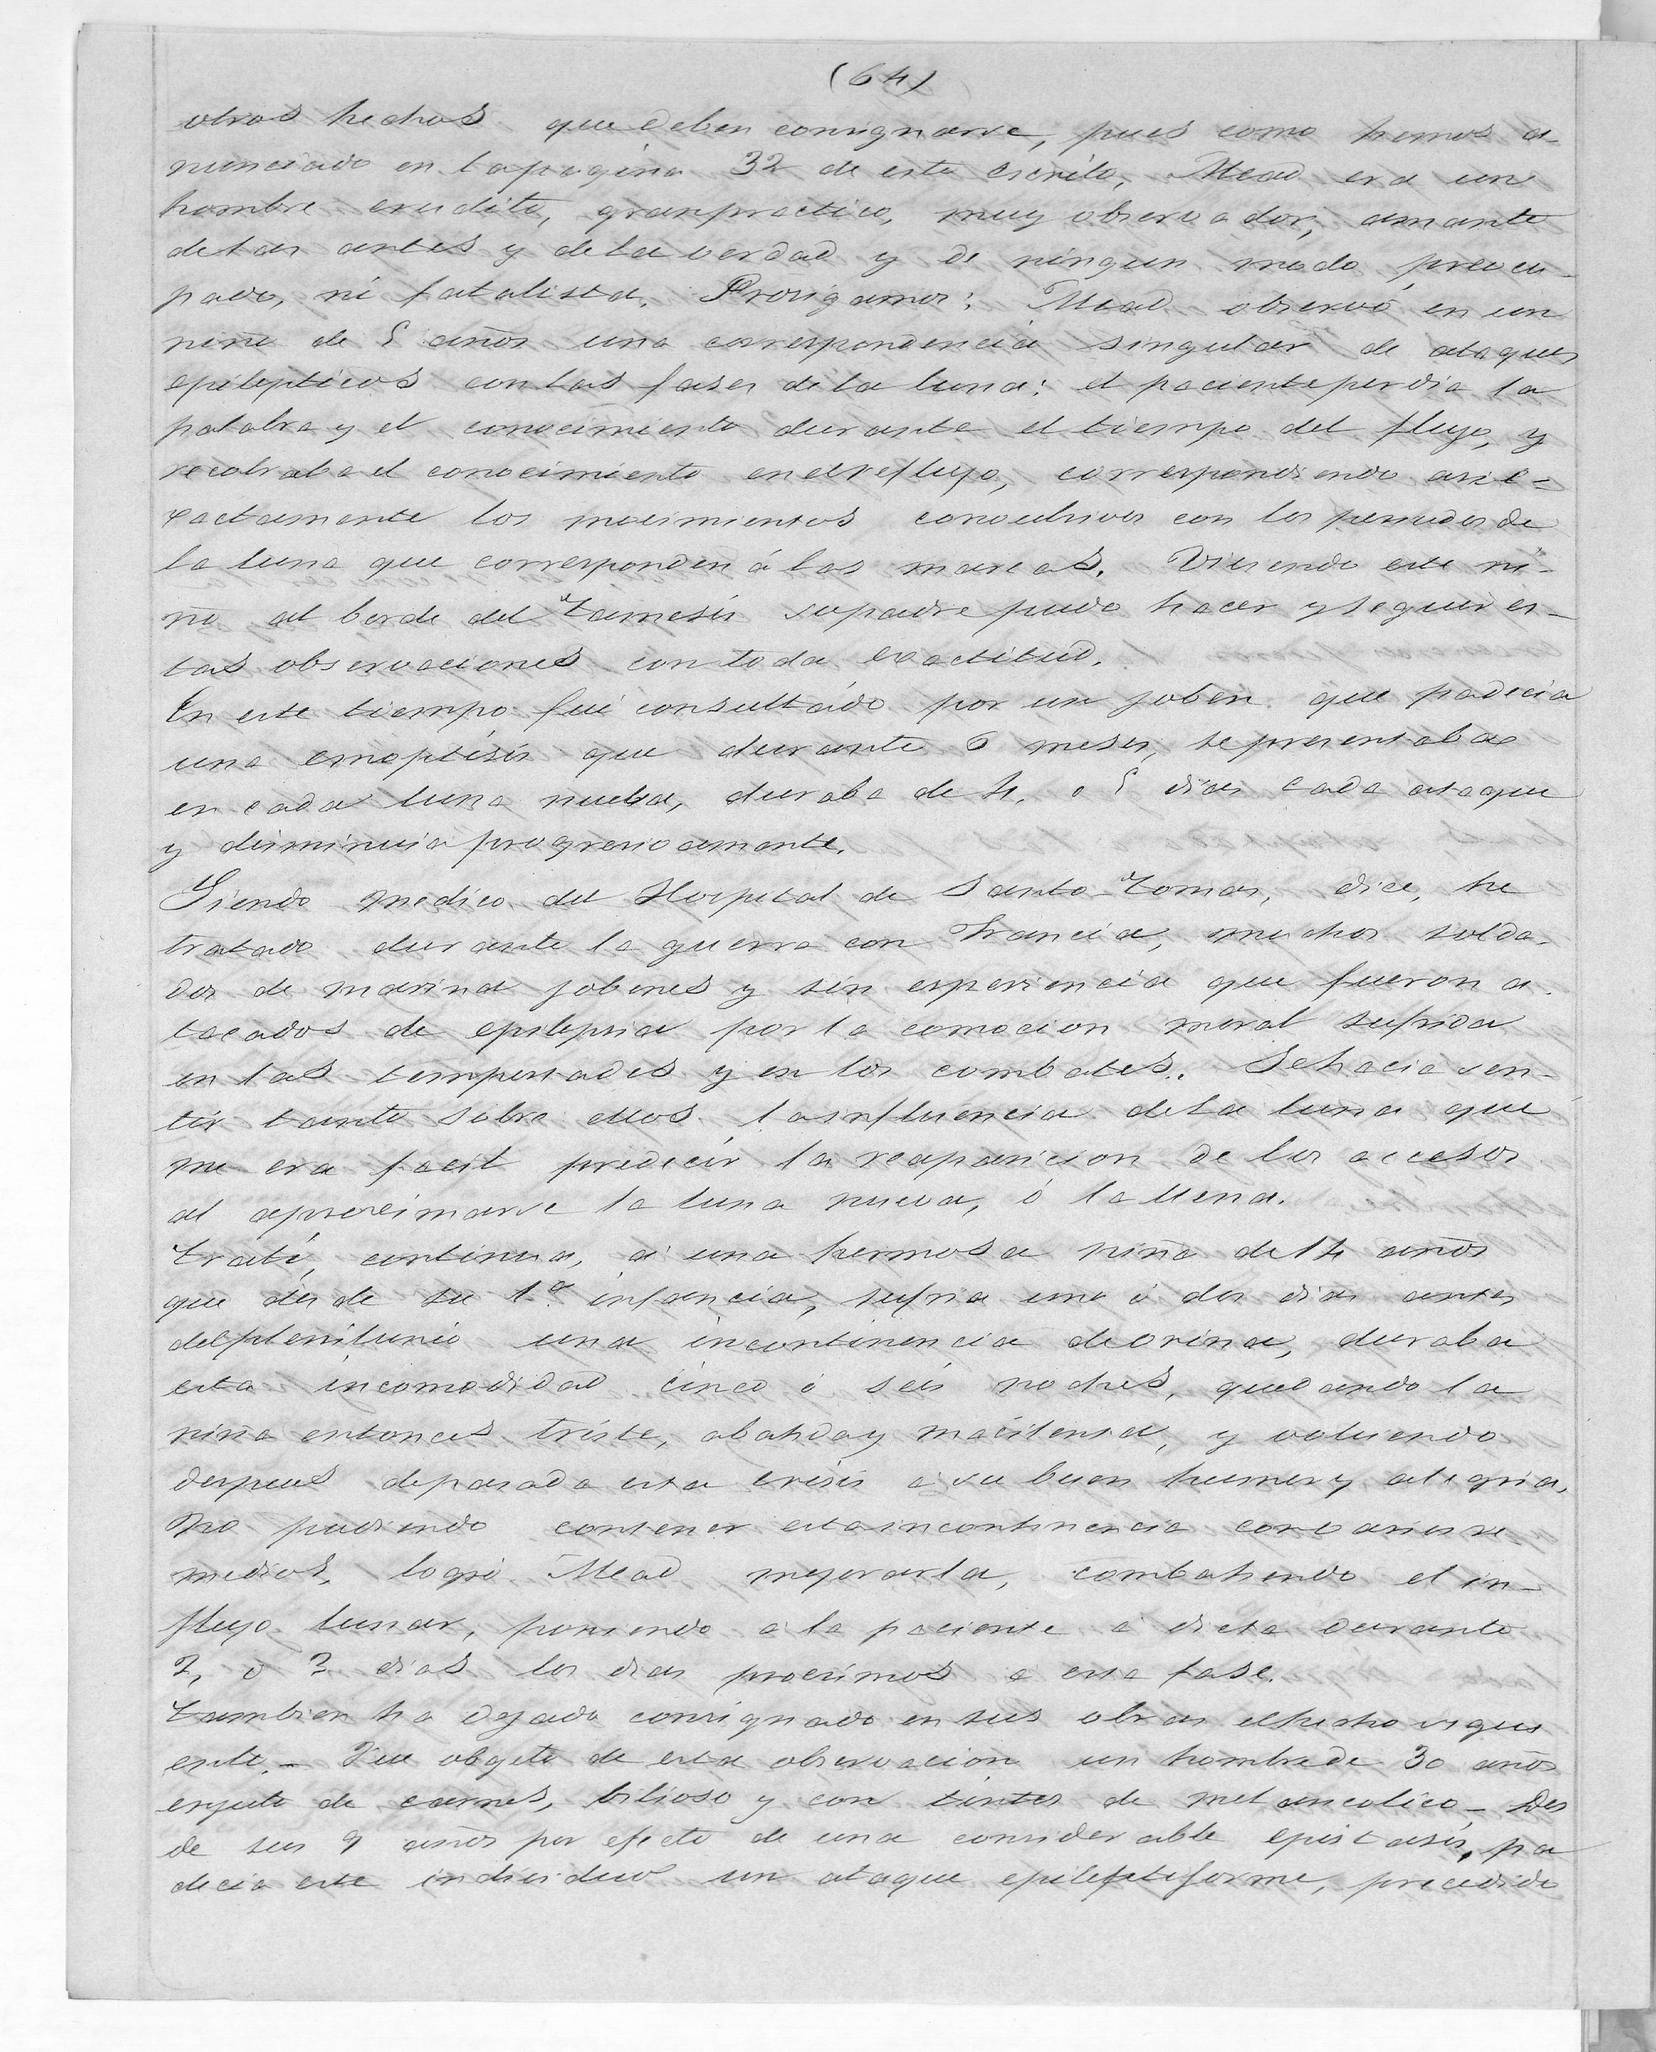 (64)
otros hechos que deben consignarse, pues como hemos a-
nunciado en la pagina 32 de este escrito, Mead era un
hombre erudito, gran practico, muy observador, amante
de las artes y de la verdad y de ningun modo preocu-
pado, ni fatalista. Prosigamos: Mead observó en un
niño de 5 años una correspondencia singular de ataques
epilepticos con las fases de la luna: el paciente perdia la
palabra y el conocimiento durante el tiempo del flujo, y
recobraba el conocimiento en el reflujo, correspondiendo asi e-
xactamente los movimientos convulsivos con los periodos de
la luna que corresponden á las mareas. Viviendo este ni-
ño al borde del Tamesis su padre pudo hacer y seguir es-
tas observaciones con toda exactitud.
En este tiempo fué consultado por un joben que padecia
una emoptisis que durante 6 meses, se presentaba
en cada luna nueba, duraba de 4, o 5 dias cada ataque
y disminuia progresivamente.
Siendo medico del Hospital de Santo Tomas, dice, he
tratado durante la guerra con Francia, muchos solda-
dos de marina jobenes y sin esperiencia que fueron a-
tacados de epilepsia por la comocion moral sufrida
en las tempestades y en los combates. Se hacia sen-
tir tanto sobre ellos la influencia de la luna que
me era facil predecir la reaparicion de los accesos
al aproximarse la luna nueva, ó la llena.
Traté, continua, á una hermosa niña de 14 años
que desde su 1ª infancia, sufria uno ó dos dias antes
del plenilunio una incontinencia de orina, duraba
esta incomodidad cinco ó seis noches, quedando la
niña entonces triste, abatida y macilenta, y volviendo
despues de pasada esta crisis a su buen humor y alegria.
No pudiendo contener esta incontinencia con varios re-
medios, logró Mead mejorarla, combatiendo el in-
flujo lunar, poniendo a la paciente á dieta durante
2, o 3 dias los dias procsimos a esta fase.
Tambien ha dejado consignado en sus obras el hecho sigui
ente. - Fue obgeto de esta observacion un hombre de 30 años
enjuto de carnes, bilioso y con tintes de melancolico - Des
de sus 9 años por efecto de una considerable epistasis, pa
decia este individuo un ataque epileptiforme, precedido